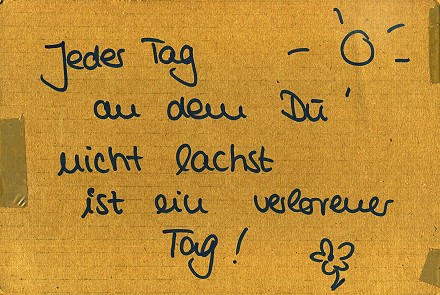 Jeder Tag
an dem Du
nicht lachst
ist ein verlorener
Tag!